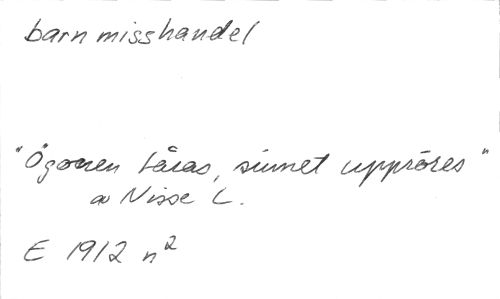 barnmisshandel
"Ögonen tåras, sinnet uppröres"
av Nisse L.
E 1912 n²